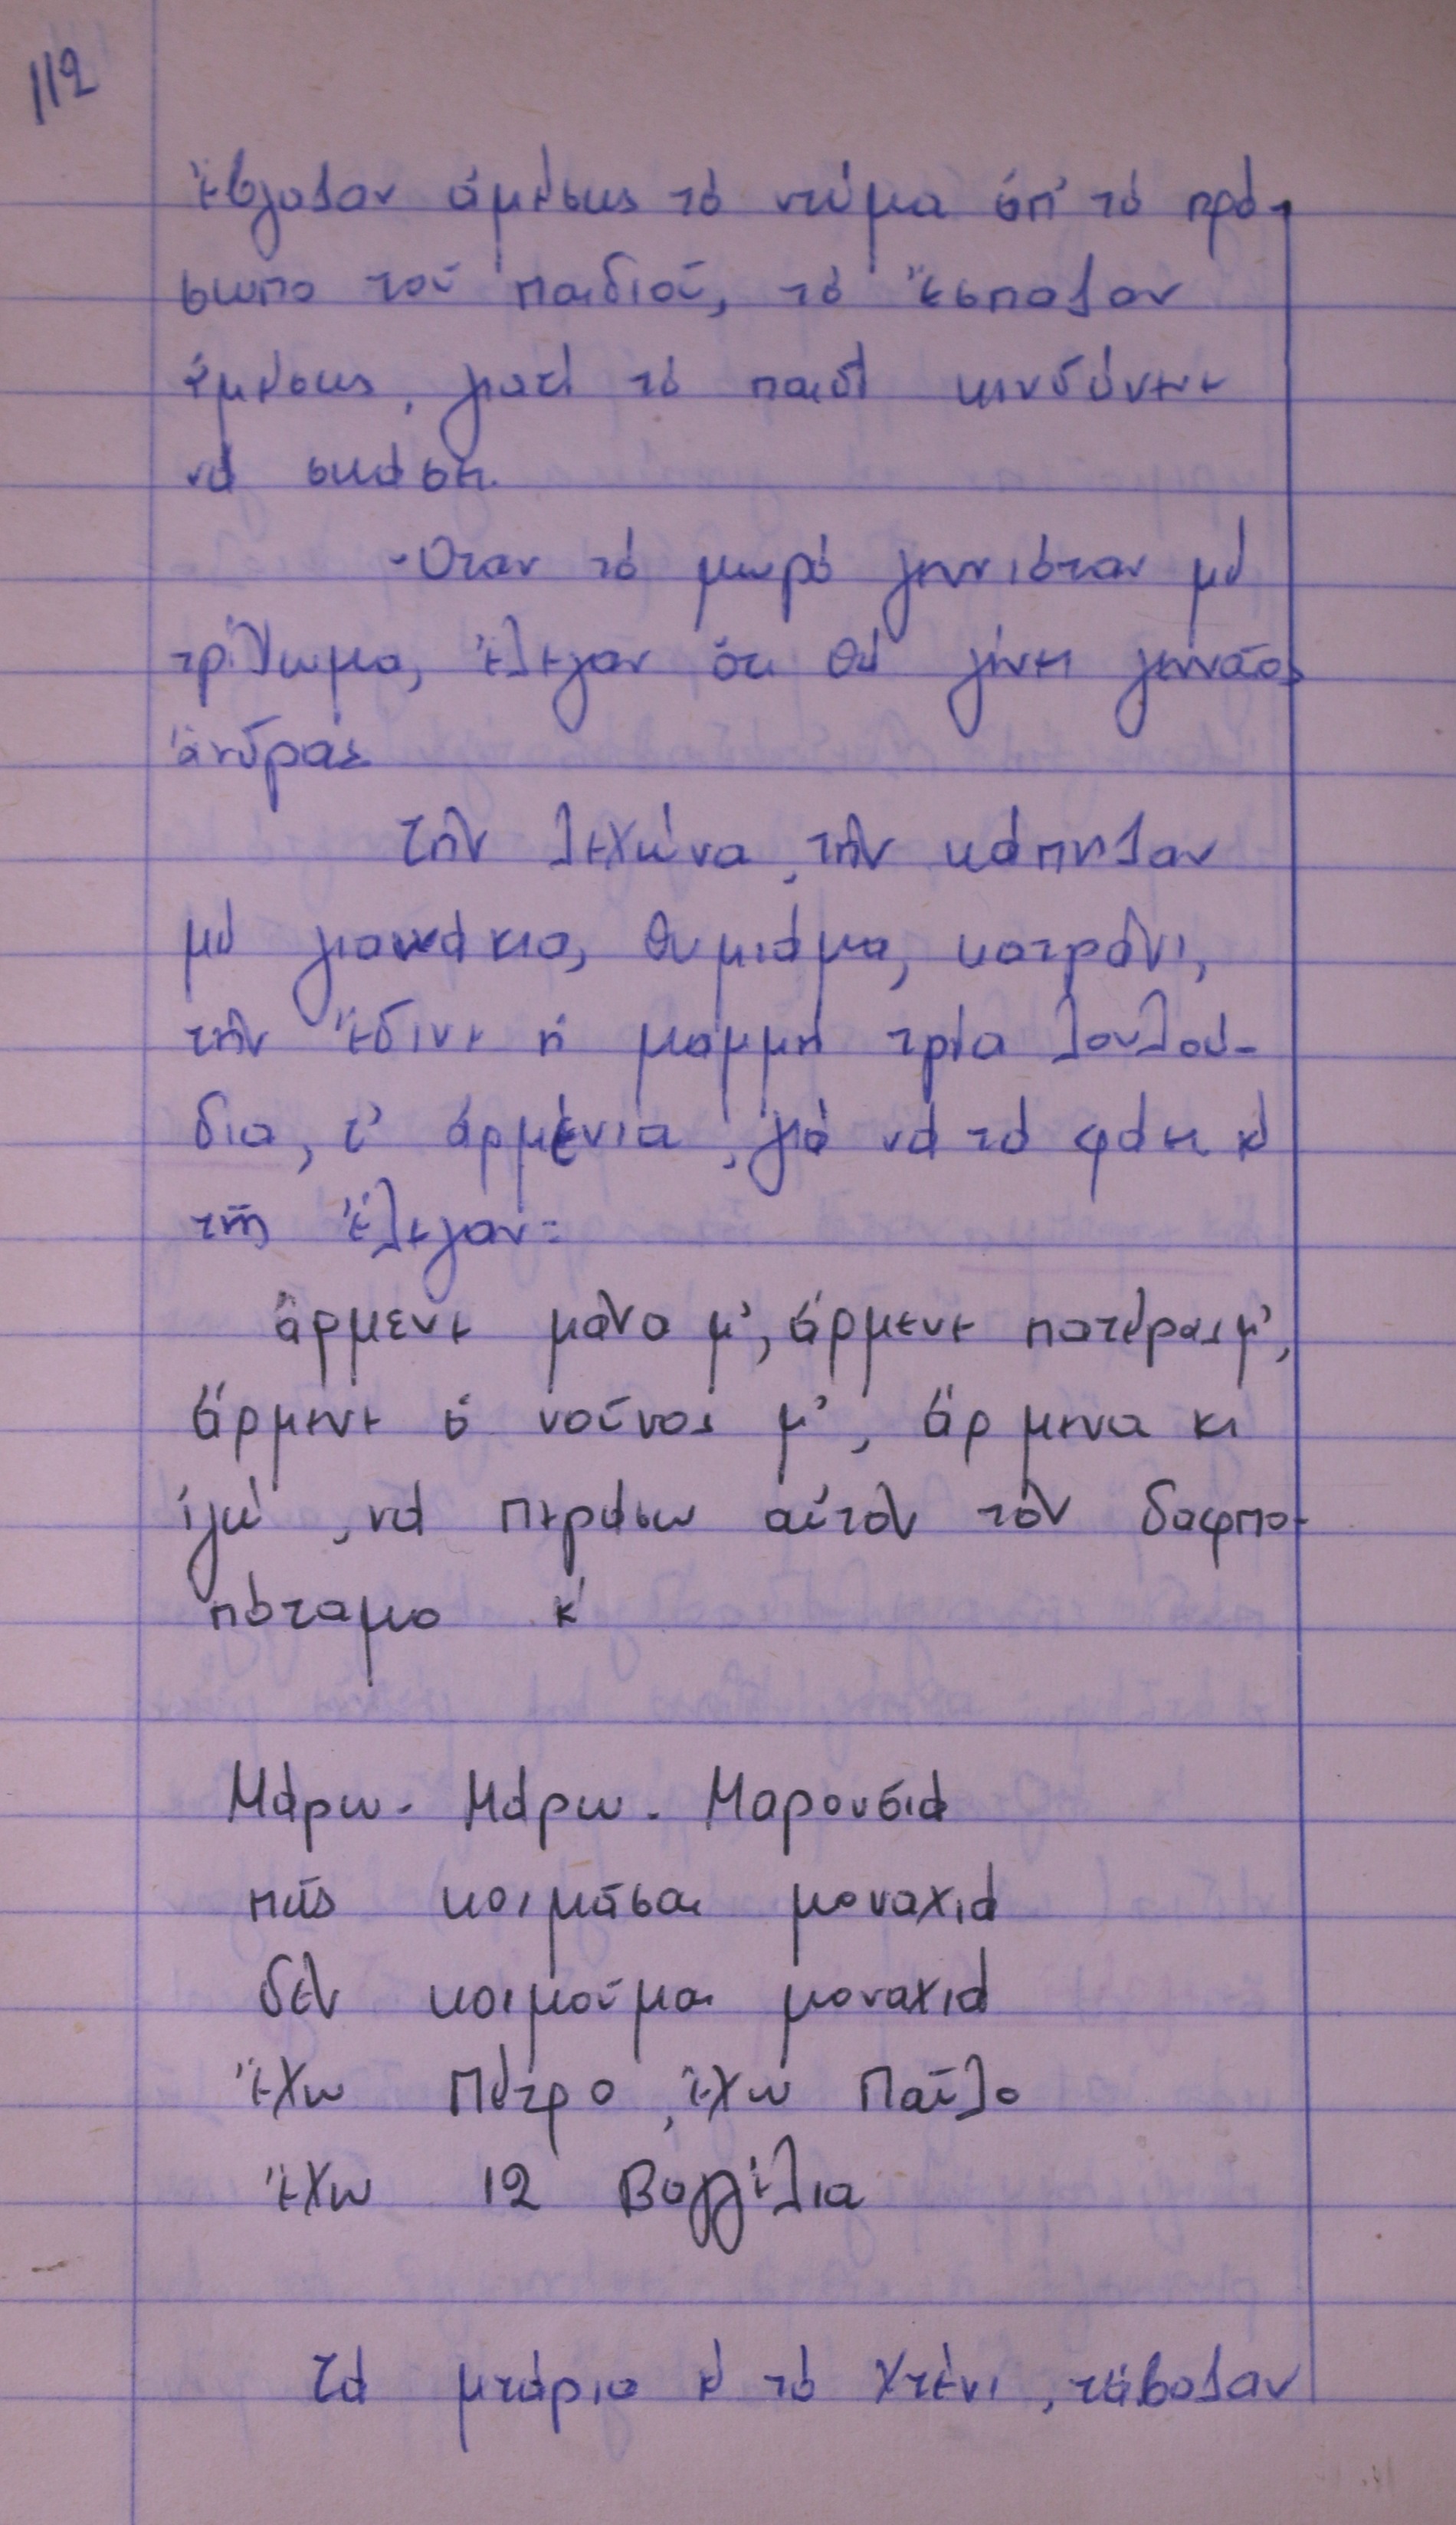 112
Ἔβγαζαν ἀμέσως τό ντύμα ἀπ' τό πρό-
σωπο τοῦ παιδιοῦ, τό ἔσπαζαν
ἀμέσως, γιατί τό παιδί κινδύνευε
νά σκάση.
Ὅταν τό μωρό γεννιόταν μέ
τρίχωμα, ἔλεγαν ὅτι θά γίνει γενναῖος
ἄνδρας
Τήν λεχώνα, τήν κάπνιζαν
μέ γιαννάκια, θυμιάμα, κατράνι,
τήν ἔδινε ἡ μαμμή τρία λουλού-
δια, τ' ἀρμένια, γιά νά τά φάει κ
τῆς ἔλεγαν:
ἄρμενε μάνα μ', ἄρμενε πατέρας μ',
ἄρμενε ὁ νοῦνος μ', ἄρμενα κι
ἐγώ, νά περάσω αὐτόν τόν δαφνο-
πόταμο κ'
Μάρω - Μάρω - Μαρουσιά
πῶς κοιμᾶσαι μοναχιά
δέν κοιμοῦμαι μοναχιά
ἔχω Πέτρο, ἔχω Παῦλο
ἔχω 12 Βαγγέλια
Τά μτάρια κ τό χτένι, τἄβαζαν